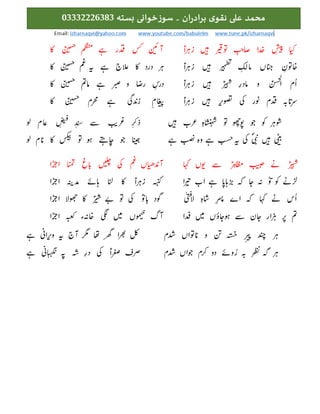 محمد علی نقوی برادران ۔ سوزخوانی بستہ 03332226383
Email: izharnaqvi@yahoo.com www.youtube.com/babulelm www.tune.pk/izharnaqvi
کیا پیش خدا صاحب توقیر ہیں زہراؑ
خاتون جناں مالک تطہیر ہیں زہراؑ
ام الحسنؑ و مادر شبیرؑ ہیں زہراؑ
سرتابہ قدم نور کی تصویر ہیں زہراؑ
شوہر کو جو پوچھو تو شہنشاہ عرب ہیں
بیٹی ہیں نبیؐ کی یہ حسب ہے وہ نسب ہے
شہؑ نے حبیب مظاہر سے کہا یوں کیا
لڑنے کو تو نہ جا کہ بڑھاپا ہے اب تیرا
اس نے کہا کہ اے شاہ لافتیٰ
تم پر ہزار جان سے ہوجاؤں میں فدا
ہر چند پیر خستہ تن و ناتواں شدم
ہر گہ نظر بہ روئے تو کردم جواں شدم
آئین کس قدر ہے منظم حسینؑ کا
ہر درد کا علاج ہے یہ غم حسینؑ کا
درس رضا و صبر ہے ماتم حسینؑ کا
پیغام زندگی ہے محرم حسینؑ کا
ذکر غریب سے سند فیض عام لو
جینا جو چاہتے ہو تو کا نام لو
آندھیاں غم کی چلیں باغ تمنا اجڑا
کنبہ زہراؑ کا لٹا ہائے مدینہ اجڑا
گود بانو کی بے شیر کا جھولا اجڑا
آگ خیموں میں لگی خانہء کعبہ اجڑا
کل بھرا گھر تھا مگر آج یہ ویرانی ہے
صرف صغراؑ کی در شہ پہ نگہبانی ہے